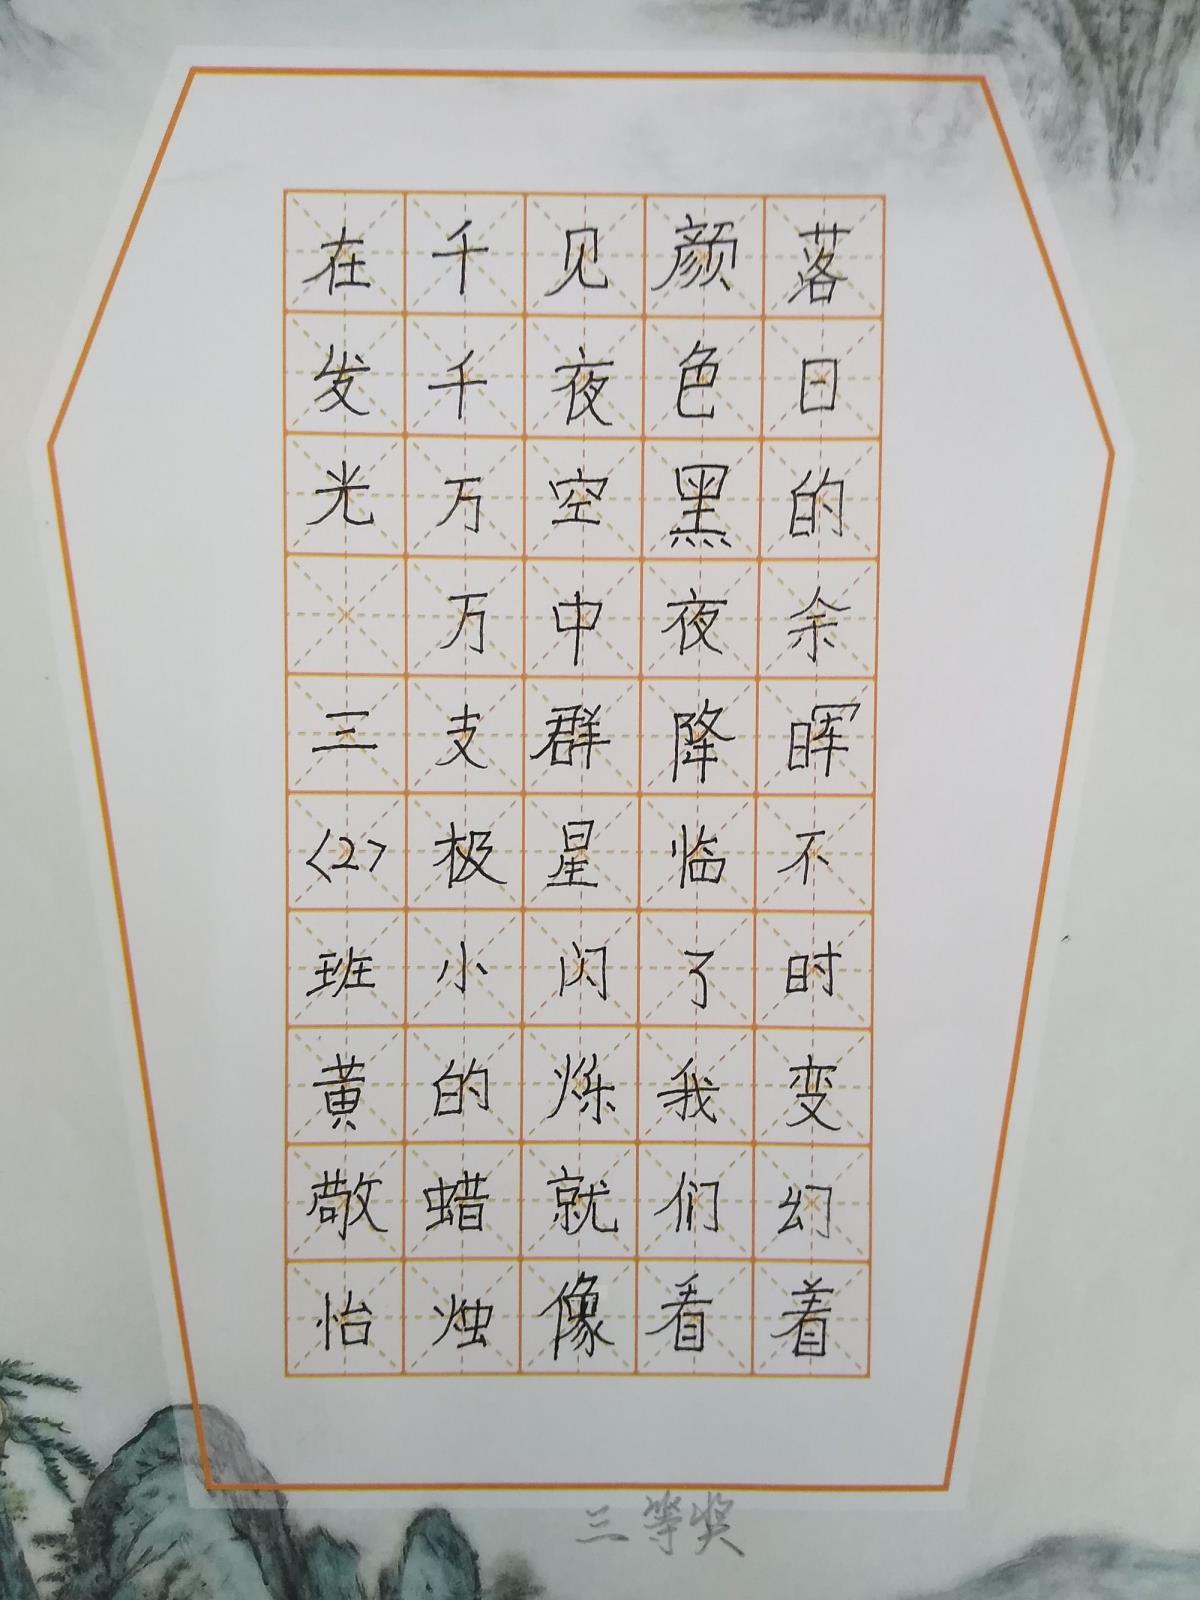 落日的余晖不时变幻着
颜色黑夜降临了我们看
见夜空中群星闪烁就像
千千万万支极小的蜡烛
在发光 三〈2〉班黄敬怡
三等奖